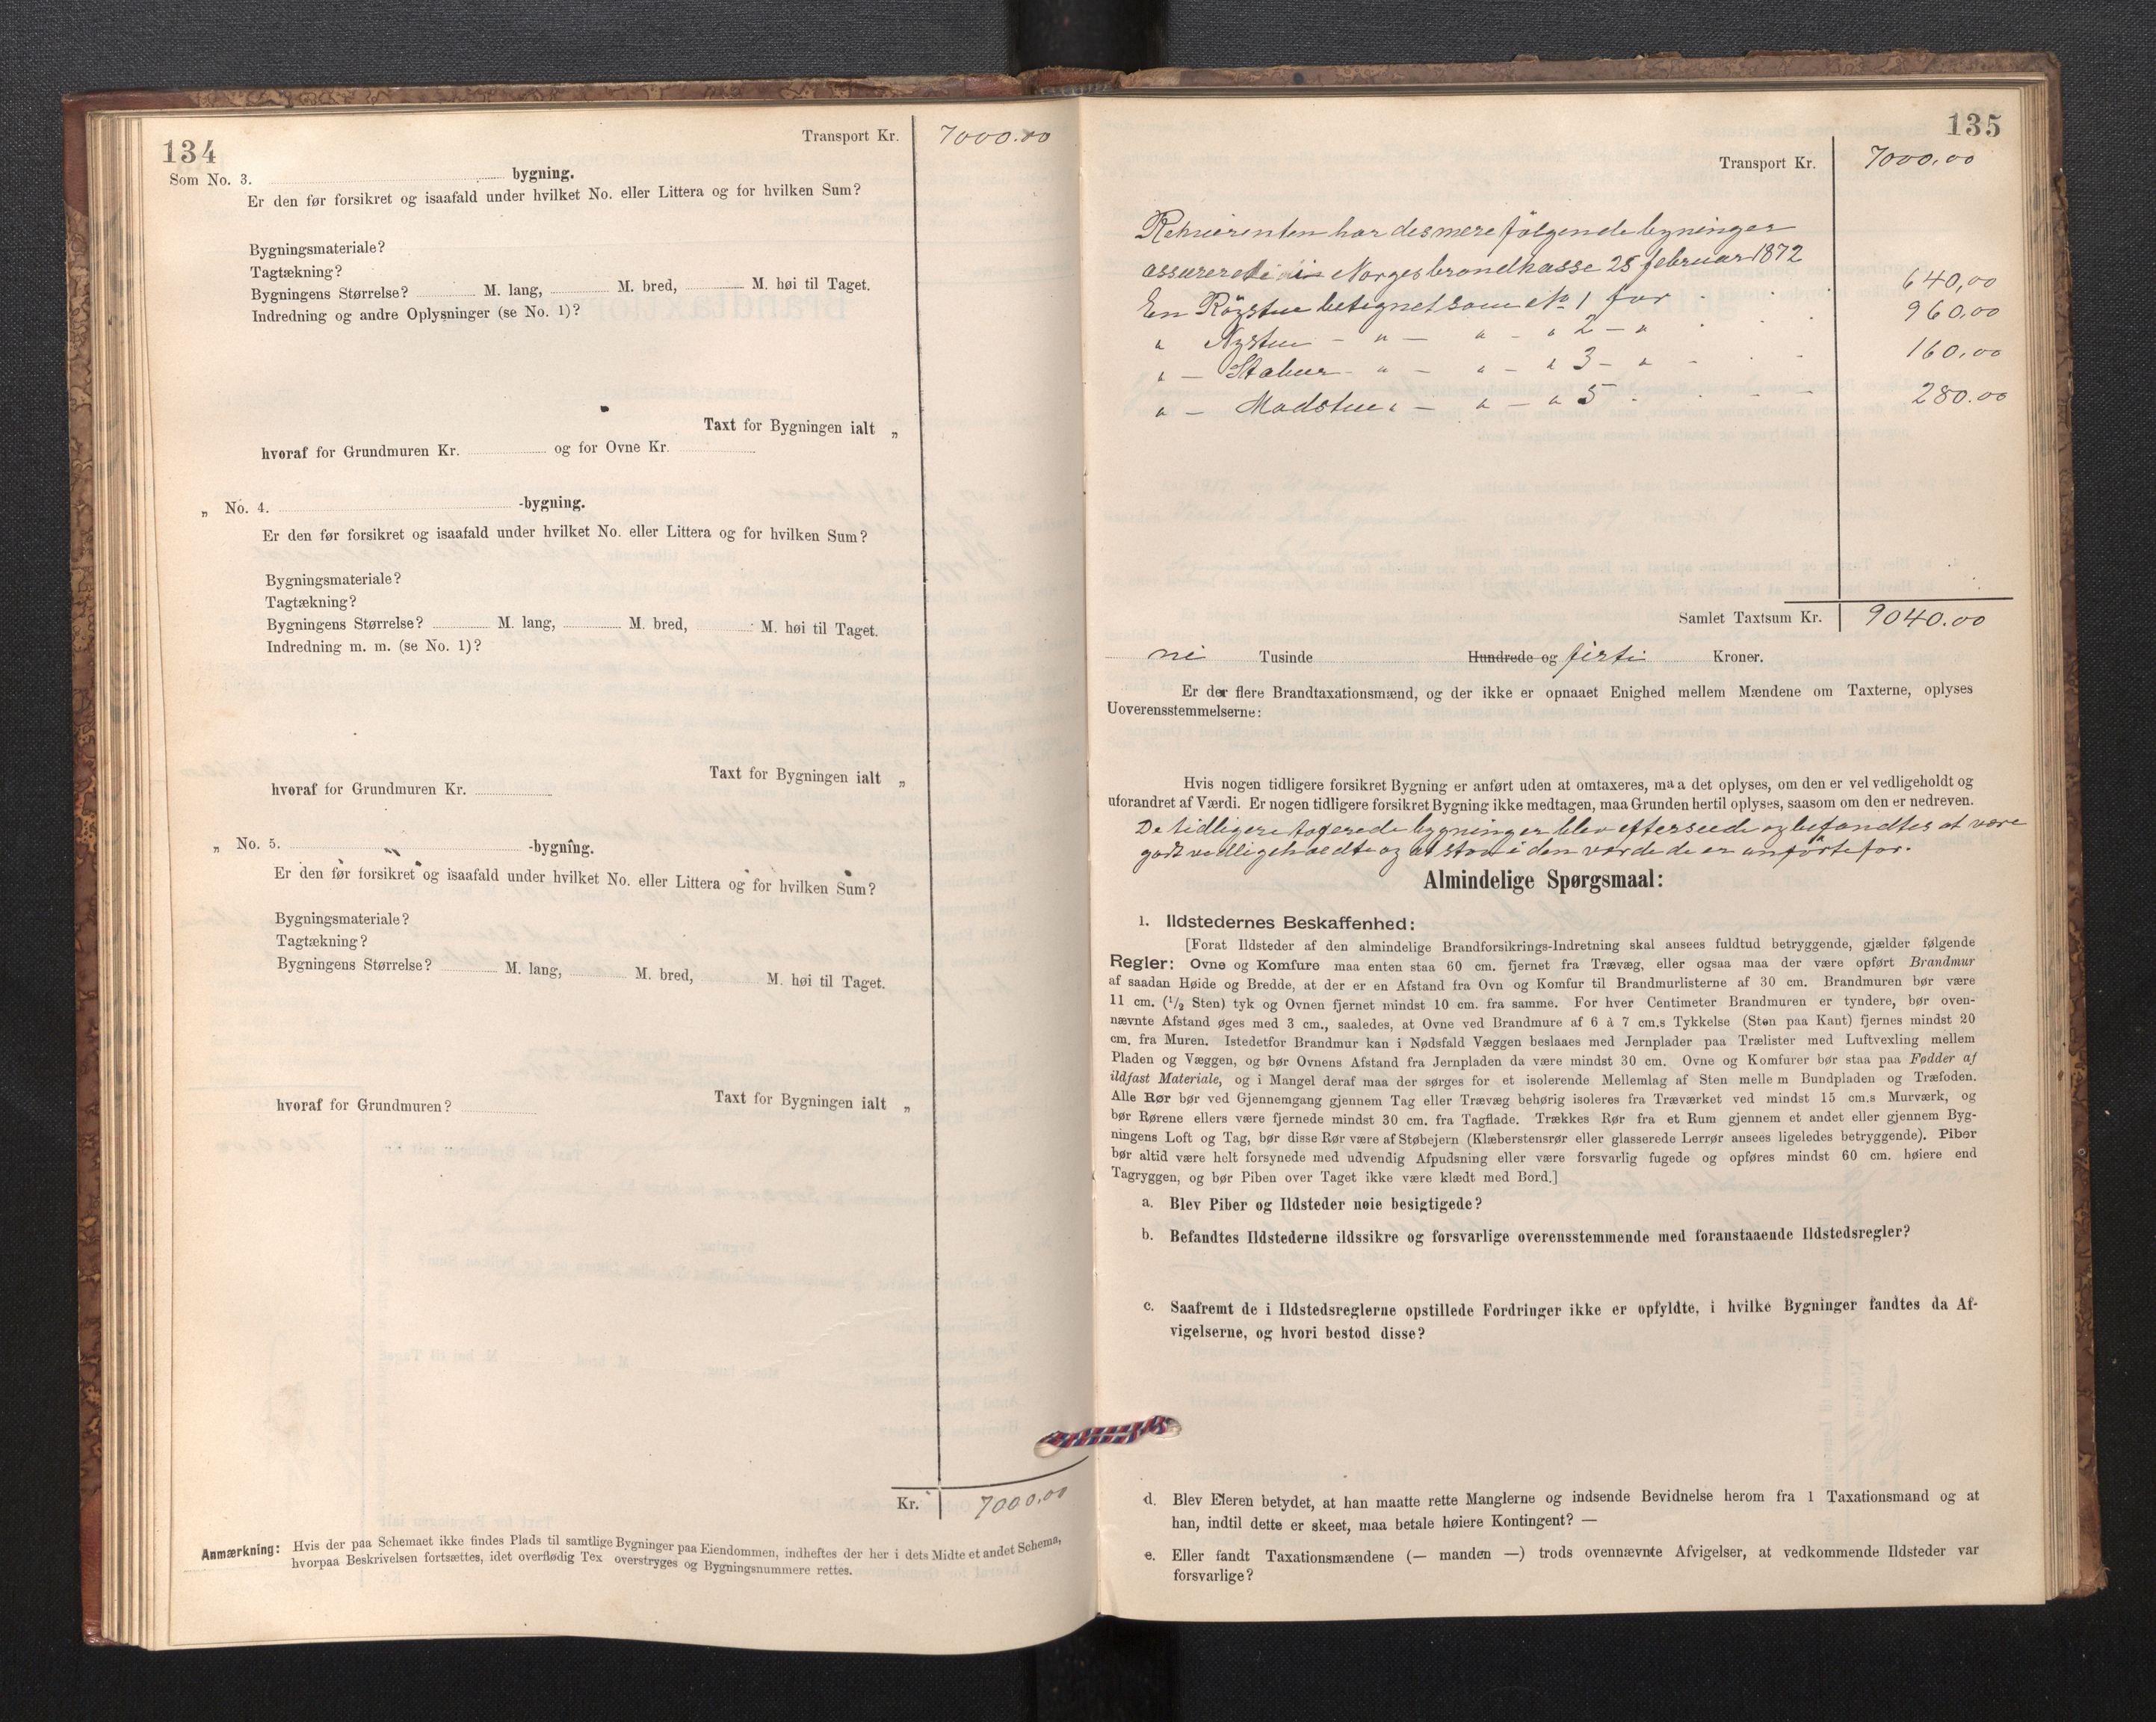 134
Transport Kr. 7000.00
Som No. 3. bygning.
Er den før forsikret og isaafald under hvilket No. eller Littera og for hvilken Sum?
Bygningsmateriale?
Tagtækning?
Bygningens Størrelse? M. lang, M. bred, M. høi til Taget.
Indredning og andre Oplysninger (se No. 1)?
Taxt for Bygningen ialt „
hvoraf for Grundmuren Kr. og for Ovne Kr.
„ No. 4. -bygning.
Er den før forsikret og isaafald under hvilket No. eller Littera og for hvilken Sum?
Bygningsmateriale?
Tagtækning?
Bygningens Størrelse? M. lang, M. bred, M. høi til Taget.
Indredning m. m. (se No. 1)?
Taxt for Bygningen ialt „
hvoraf for Grundmuren Kr.
„ No. 5. -bygning.
Er den før forsikret og isaafald under hvilket No. eller Littera og for hvilken Sum?
Bygningsmateriale?
Tagtækning?
Bygningens Størrelse? M. lang, M. bred, M. høi til Taget.
Taxt for Bygningen ialt „
hvoraf for Grundmuren?
Kr. 7000.00
Anmærkning: Hvis der paa Schemaet ikke findes Plads til samtlige Bygninger paa Eiendommen, indheftes der her i dets Midte et andet Schema,
hvorpaa Beskrivelsen fortsættes, idet overflødig Tex overstryges og Bygningsnummere rettes.
135
Transport Kr. 7000.00
Rekvirenten har desmere følgende bygninger
assurerede i Norges brandkasse 25 februar 1872
En Røgstue betegnet som No 1 for 640,00
" Nystue - " - " - " 2 - " 960,00
" - Stabur - " - " - " 3 - " - 160,00
" - Madstue " - " - " 5 280.00
Samlet Taxtsum Kr. 9040.00
ni Tusinde Hundrede og firti Kroner.
Er der flere Brandtaxationsmænd, og der ikke er opnaaet Enighed mellem Mændene om Taxterne, oplyses
Uoverensstemmelserne:
Hvis nogen tidligere forsikret Bygning er anført uden at omtaxeres, maa det oplyses, om den er vel vedligeholdt og
uforandret af Værdi. Er nogen tidligere forsikret Bygning ikke medtagen, maa Grunden hertil oplyses, saasom om den er nedreven.
De tidligere taxerede bygninger blev efterseede og befandtes at være
godt vedligeholdte og at staa i den værde de er anførte for.
Almindelige Spørgsmaal:
1. Ildstedernes Beskaffenhed:
[Forat Ildsteder af den almindelige Brandforsikrings-Indretning skal ansees fuldtud betryggende, gjælder følgende
Regler: Ovne og Komfure maa enten staa 60 cm. fjernet fra Trævæg, eller ogsaa maa der være opført Brandmur
af saadan Høide og Bredde, at der er en Afstand fra Ovn og Komfur til Brandmurlisterne af 30 cm. Brandmuren bør være
11 cm. (1/2 Sten) tyk og Ovnen fjernet mindst 10 cm. fra samme. For hver Centimeter Brandmuren er tyndere, bør oven-
nævnte Afstand øges med 3 cm., saaledes, at Ovne ved Brandmure af 6 à 7 cm.s Tykkelse (Sten paa Kant) fjernes mindst 20
cm. fra Muren. Istedetfor Brandmur kan i Nødsfald Væggen beslaaes med Jernplader paa Trælister med Luftvexling mellem
Pladen og Væggen, og bør Ovnens Afstand fra Jernpladen da være mindst 30 cm. Ovne og Komfurer bør staa paa Fødder af
ildfast Materiale, og i Mangel deraf maa der sørges for et isolerende Mellemlag af Sten mellem Bundpladen og Træfoden.
Alle Rør bør ved Gjennemgang gjennem Tag eller Trævæg behørig isoleres fra Træværket ved mindst 15 cm.s Murværk, og
bør Rørene ellers være fjernede mindst 30 cm. fra Tagflade. Trækkes Rør fra et Rum gjennem et andet eller gjennem Byg-
ningens Loft og Tag, bør disse Rør være af Støbejern (Klæberstensrør eller glasserede Lerrør ansees ligeledes betryggende). Piber
bør altid være helt forsynede med udvendig Afpudsning eller være forsvarlig fugede og opføres mindst 60 cm. høiere end
Tagryggen, og bør Piben over Taget ikke være klædt med Bord.]
a. Blev Piber og Ildsteder nøie besigtigede?
b. Befandtes Ildstederne ildssikre og forsvarlige overensstemmende med foranstaaende Ildstedsregler?
c. Saafremt de i Ildstedsreglerne opstillede Fordringer ikke er opfyldte, i hvilke Bygninger fandtes da Af-
vigelserne, og hvori bestod disse?
d. Blev Eieren betydet, at han maatte rette Manglerne og indsende Bevidnelse herom fra 1 Taxationsmand og at
han, indtil dette er skeet, maa betale høiere Kontingent? —
e. Eller fandt Taxationsmændene (— manden —) trods ovennævnte Afvigelser, at vedkommende Ildsteder var
forsvarlige?